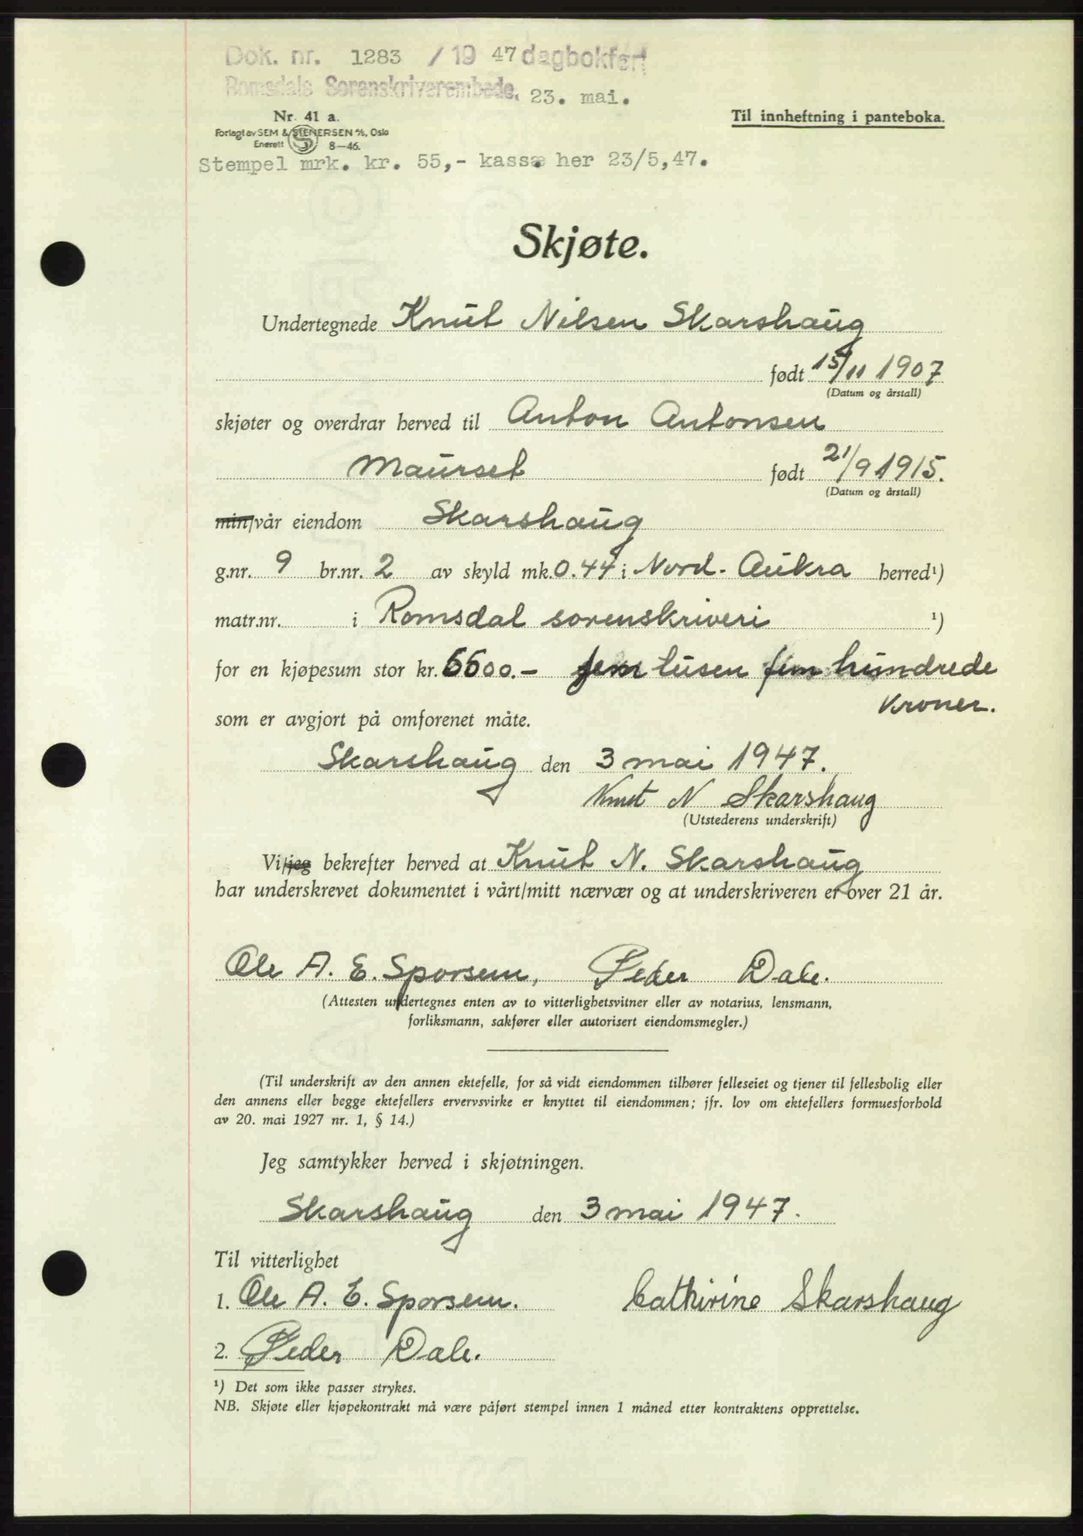 Dok. nr. 1283 / 19 47 dagbokført
Romsdals Sorenskriverembede. 23. mai.
Nr. 41 a.
Til innheftning i panteboka.
Forlagt av SEM & STENERSEN A/S, Oslo
Enerett S 8—46.
Stempel mrk. kr. 55,- kassæ her 23/5,47.
Skjøte.
Undertegnede Knut Nilsen Skarshaug
født 15/11 1907
(Datum og årstall)
skjøter og overdrar herved til Anton Antonsen
Maurset født 21/9 1915.
(Datum og årstall)
min/vår eiendom Skarshaug
g.nr. 9 br.nr. 2 av skyld mk. 0.44 i Nord-Aukra herred¹)
matr.nr. i Romsdal sorenskriveri ¹)
for en kjøpesum stor kr. 5500.- fem tusen fem hundrede
kroner.
som er avgjort på omforenet måte.
Skarshaug den 3 mai 1947.
Knut N Skarshaug
(Utstederens underskrift)
Vi/jeg bekrefter herved at Knut N. Skarshaug
har underskrevet dokumentet i vårt/mitt nærvær og at underskriveren er over 21 år.
Ole A. E. Sporsem, Peder Dale.
(Attesten undertegnes enten av to vitterlighetsvitner eller av notarius, lensmann,
forliksmann, sakfører eller autorisert eiendomsmegler.)
(Til underskrift av den annen ektefelle, for så vidt eiendommen tilhører felleseiet og tjener til fellesbolig eller
den annens eller begge ektefellers ervervsvirke er knyttet til eiendommen; jfr. lov om ektefellers formuesforhold
av 20. mai 1927 nr. 1, § 14.)
Jeg samtykker herved i skjøtningen.
Skarshaug den 3 mai 1947.
Til vitterlighet
1. Ole A. E. Sporsem. Cathirine Skarshaug
2. Peder Dale.
¹) Det som ikke passer strykes.
NB. Skjøte eller kjøpekontrakt må være påført stempel innen 1 måned etter kontraktens opprettelse.